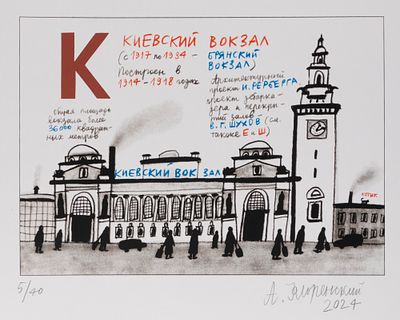 К
КИЕВСКИЙ ВОКЗАЛ
(с 1917 по 1934 - БРЯНСКИЙ ВОКЗАЛ)
Построен в
1914-1918 годах
Архитектурный
проект И. РЕРБЕРГА,
проект дебаркадера и перекрытий залов -
В. Г. ШУХОВ (см.
также Е и Ш)
общая площадь
вокзала более
36000 квадратных метров
КИЕВСКИЙ ВОКЗАЛ
5/40
2024